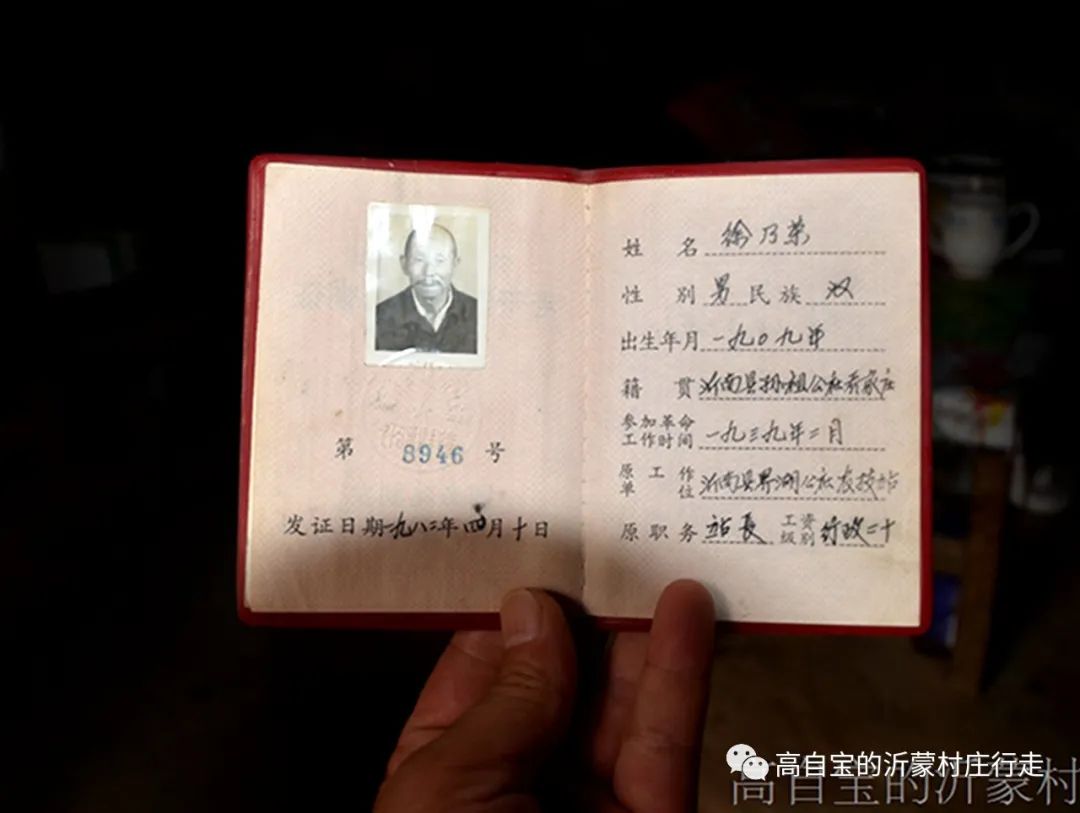 第 8946 号
发证日期一九八二年四月十日
姓名 徐乃荣
性别 男 民族 汉
出生年月 一九〇九年
籍贯 沂南县孙祖公社乔家庄
参加革命工作时间 一九三九年二月
原工作单位 沂南县界湖公社农技站
原职务 站長 工资级别 行政二十
高自宝的沂蒙村庄行走
高自宝的沂蒙村